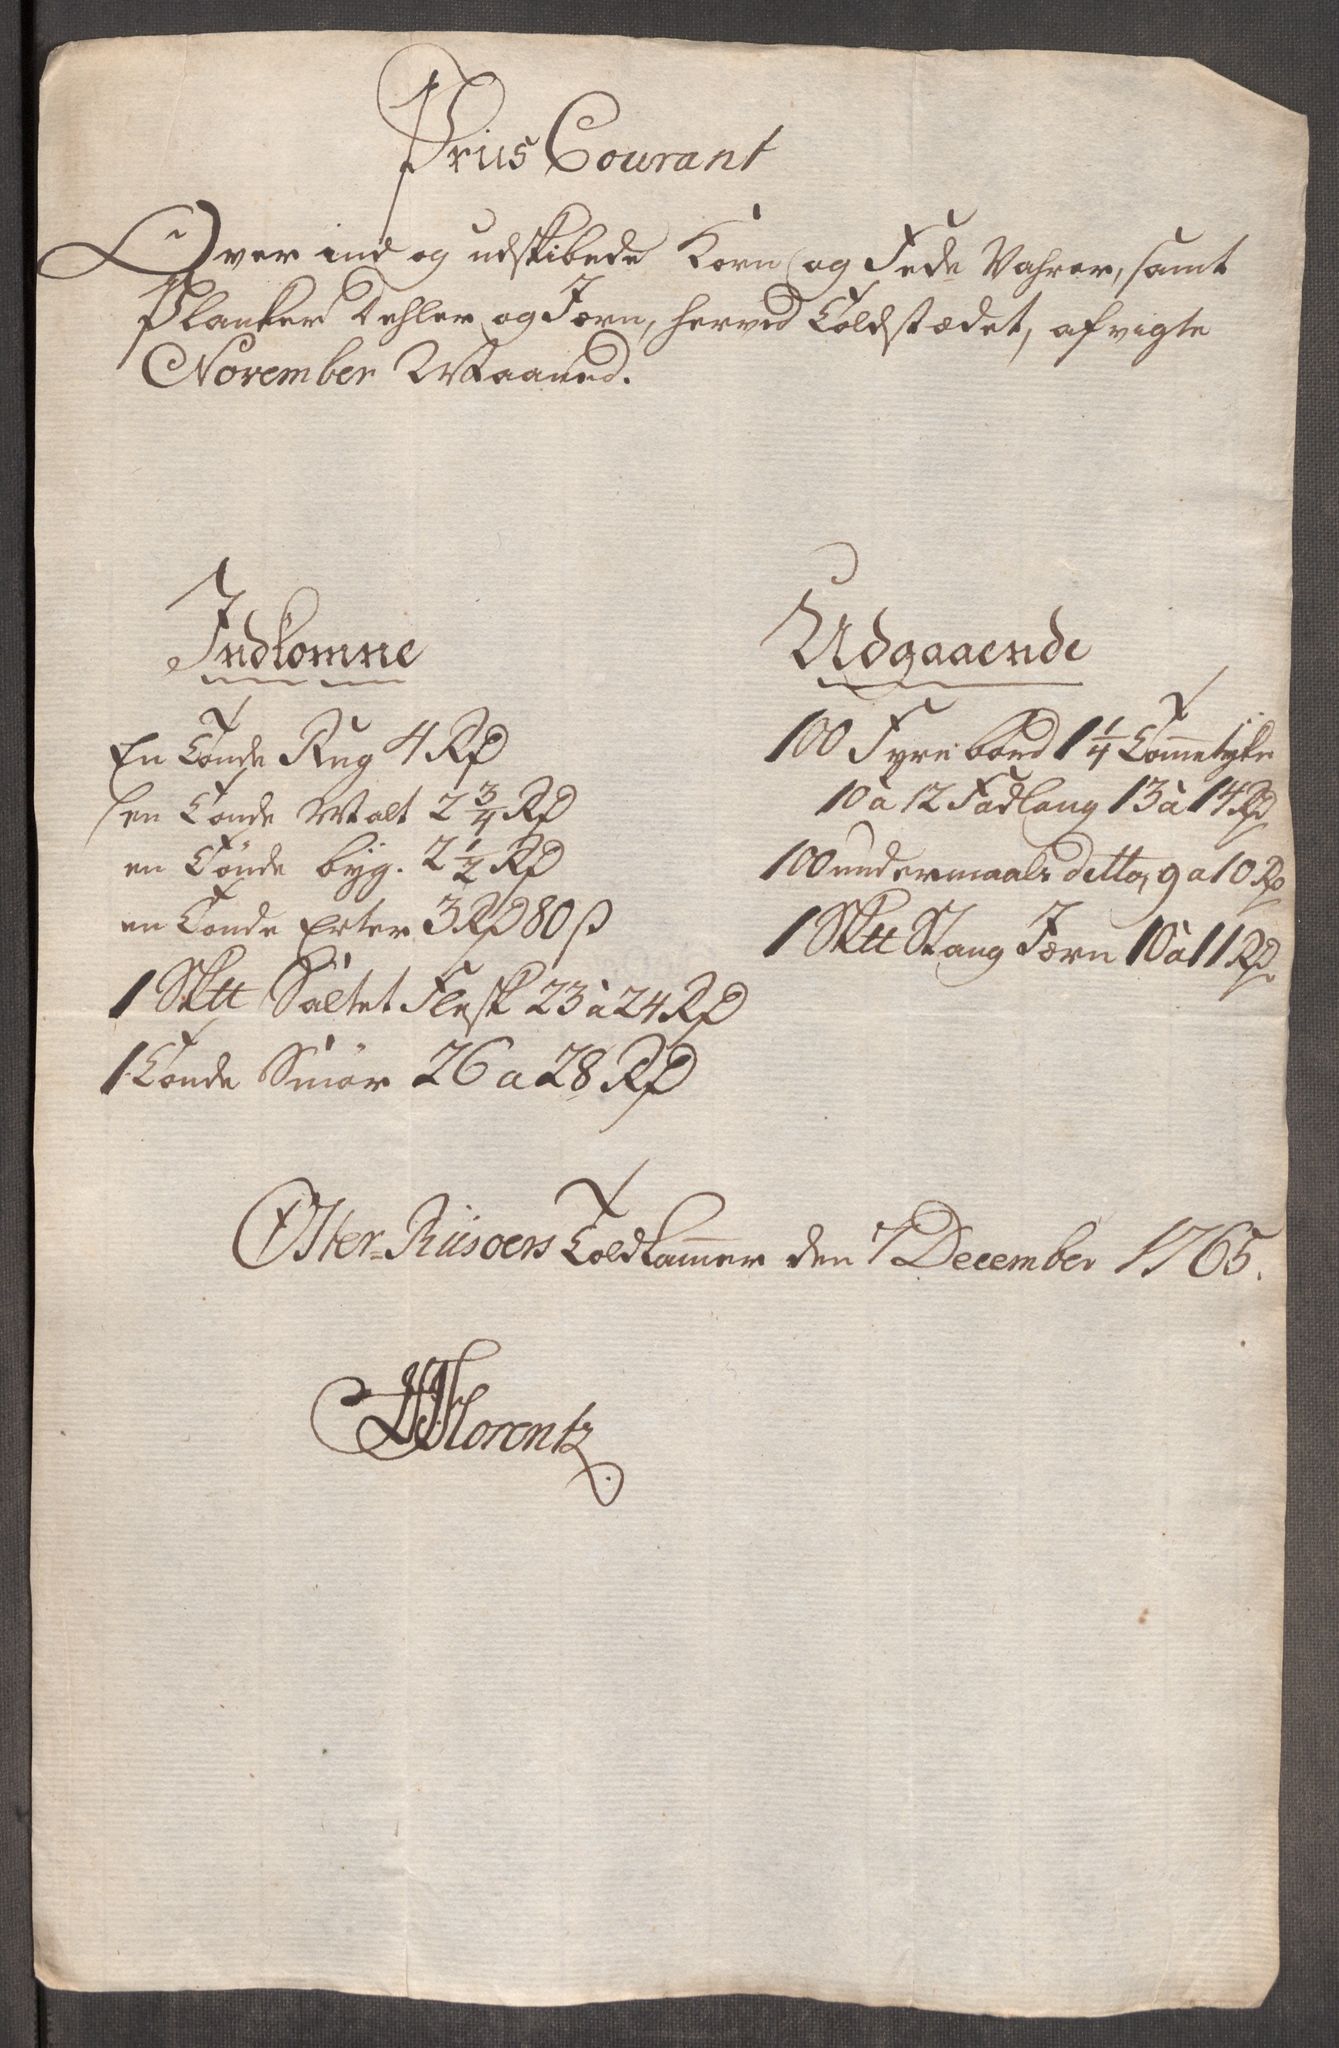 Priis Courant
Over ind og udskibede Korn og Fede Vahrer, samt
Planker Dehler og Jern, herved Toldstædet, afvigte
November Maaned.
Indkomne
En Tønde Rug 4 Rd
en Tønde Malt 2 3/4 Rd
en Tønde byg. 2 1/2 Rd
en Tønde Erter 3 Rd 80 ß
1 Sktt Saltet Flesk 23 à 24 Rd
1 Tønde Smör 26 a 28 Rd
Udgaaende
100 Fyrre bord 1 1/4 Tom̅e tykke
10 a 12 Fod lang 13 à 14 Rd
100 undermaals ditto, 9 a 10 Rd
1 Sktt Stang Jern 10 à 11 Rd
Øster-Riisoers Toldkam̅er den 7 December 1765.
Florentz